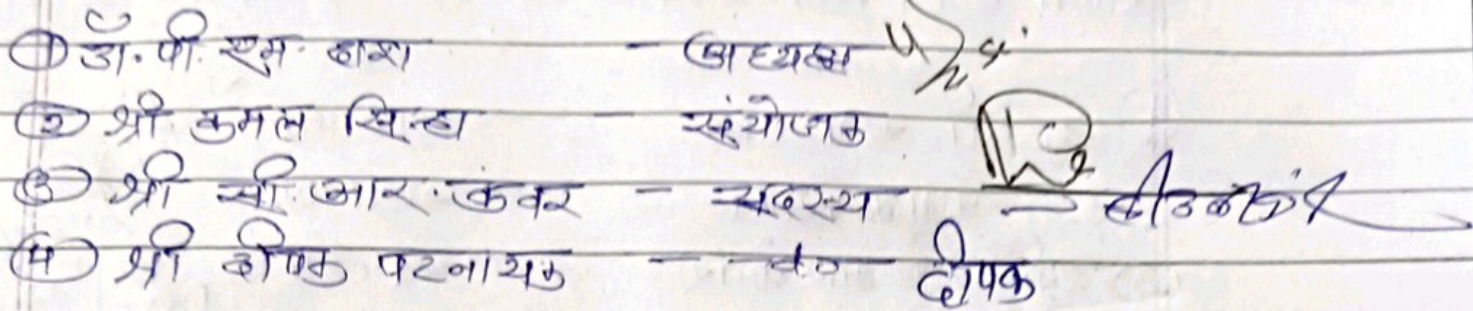 ① डॉ. पी. एस. दाश - अध्यक्ष
② श्री कमल सिन्हा - संयोजक
③ श्री सी. आर. कंवर - सदस्य
④ श्री दीपक पटनायक - दीपक